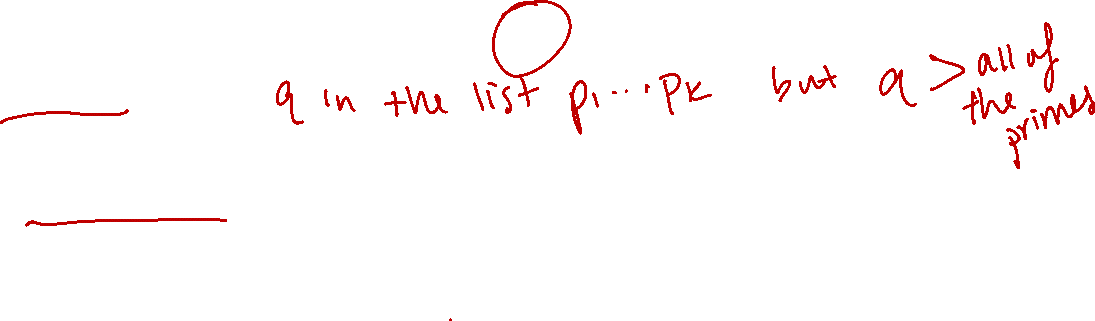 q in the list p₁...pₖ but q > all of
the
primes